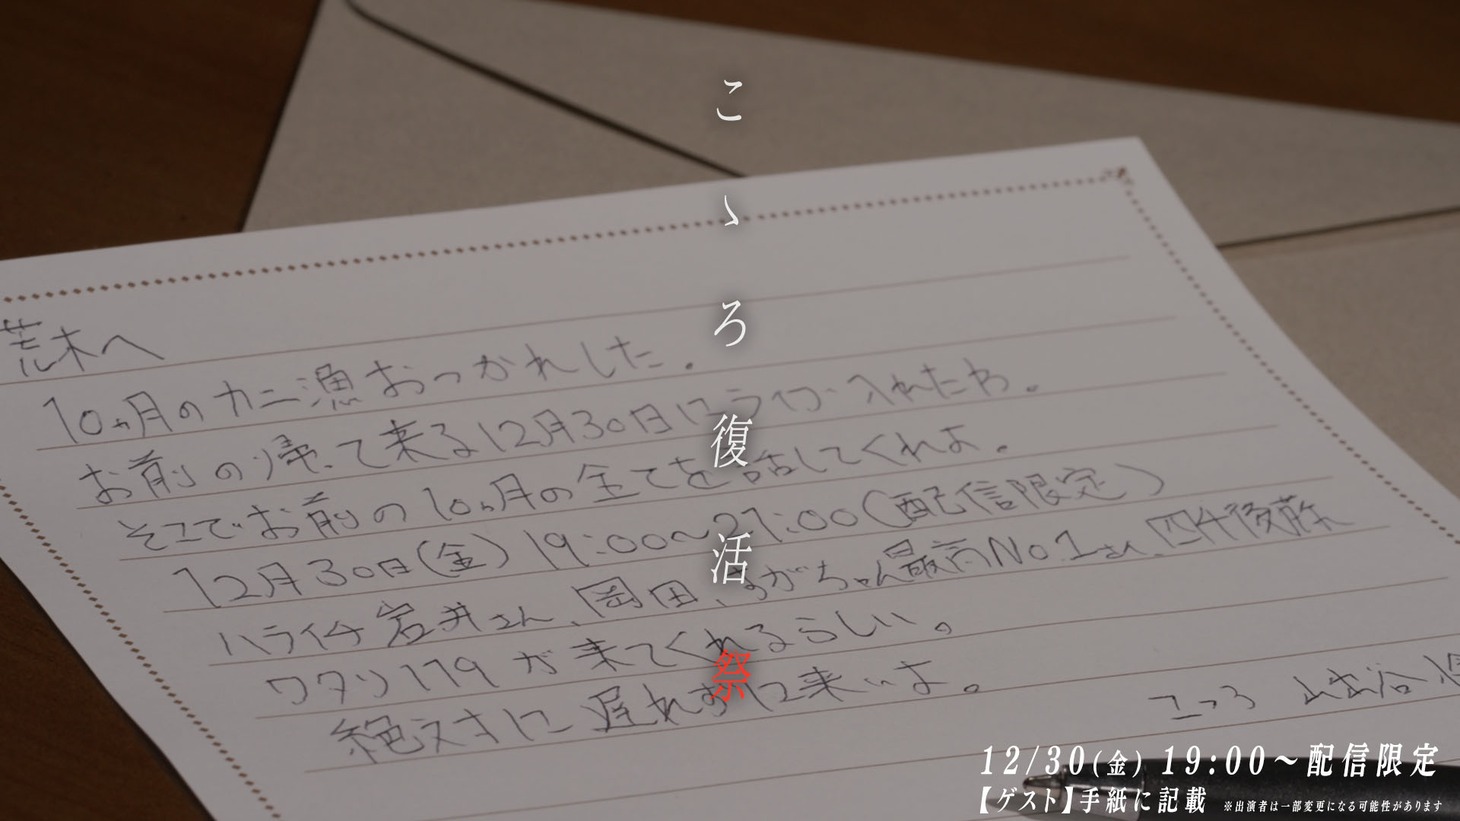 こゝろ復活祭
荒木へ
10ヵ月のカニ漁おつかれした。
お前の帰って来る12月30日にライブ入れたわ。
そこでお前の10ヵ月の全てを話してくれよ。
12月30日(金) 19:00〜21:00(配信限定)
ハライチ岩井さん、岡田、すがちゃん最高No.1さん、四千後藤、
ワタリ119が来てくれるらしい。
絶対に遅れずに来いよ。
こゝろ 山出谷
12/30(金) 19:00〜配信限定
【ゲスト】手紙に記載 ※出演者は一部変更になる可能性があります